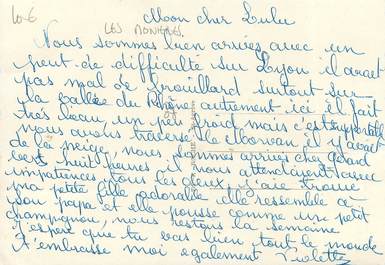 10-6
Mon cher Lulu
LES MONIERES
Nous sommes bien arrivés avec un
peut de difficulte sur Lyon il avait
pas mal de brouillard surtout sur
la vallée du Rhône autrement ici il fait
très beau un peu froid mais c'est supportable
nous avons traversé le Morvan il y avait
de la neige, nous sommes arrivés chez Gérard
vers huit heures il nous attendaient avec
impatiences tous les deux, j'ai trouvé
ma petite fille adorable elle ressemble à
son papa et elle pousse comme un petit
champignon, nous restons la semaine
J'espère que tu vas bien tout le monde
t'embrasse moi également Violette